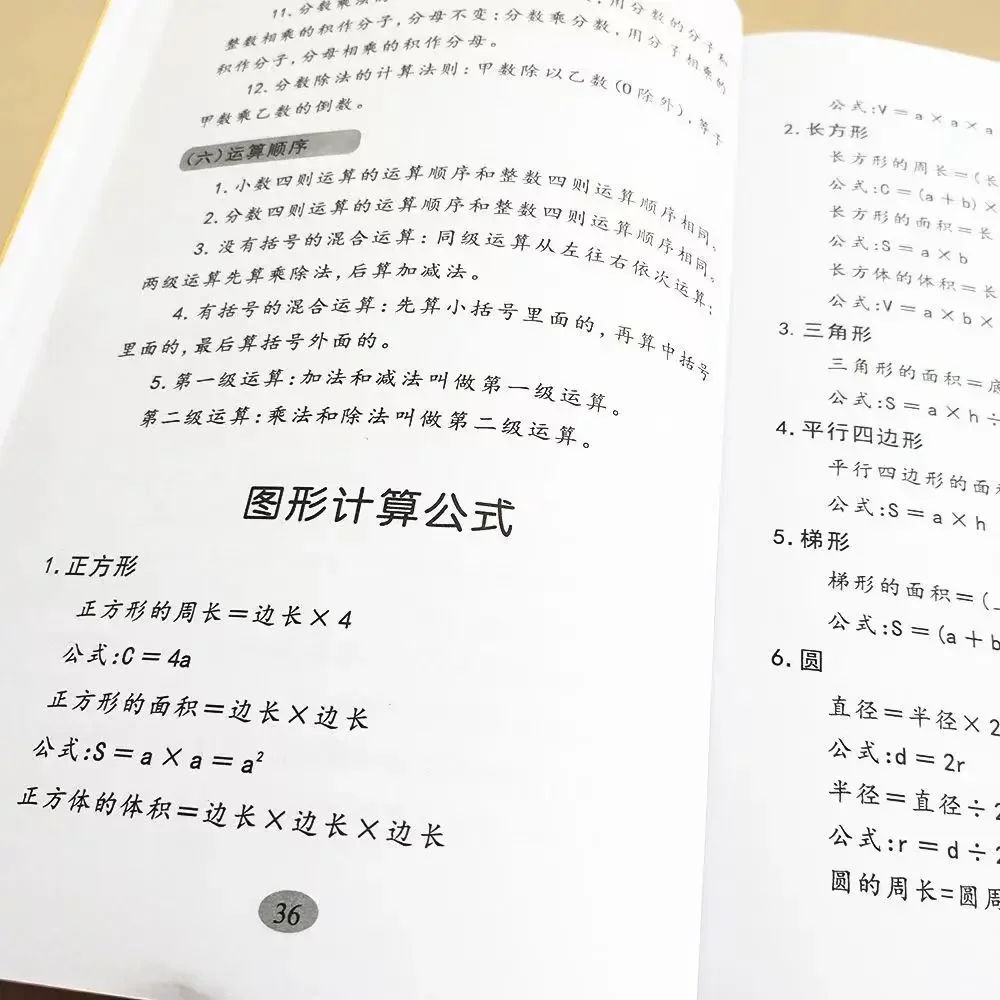 11.分数乘法的
用分数的分子和
整数相乘的积作分子,分母不变;分数乘分数,用分子相乘的
积作分子,分母相乘的积作分母。
12.分数除法的计算法则:甲数除以乙数(0除外),等于
甲数乘乙数的倒数。
(六)运算顺序
1.小数四则运算的运算顺序和整数四则运算顺序相同。
2.分数四则运算的运算顺序和整数四则运算顺序相同。
3.没有括号的混合运算:同级运算从左往右依次运算;
两级运算先算乘除法,后算加减法。
4.有括号的混合运算:先算小括号里面的,再算中括号
里面的,最后算括号外面的。
5.第一级运算:加法和减法叫做第一级运算。
第二级运算:乘法和除法叫做第二级运算。
图形计算公式
1.正方形
正方形的周长=边长×4
公式:C=4a
正方形的面积=边长×边长
公式:S=a×a=a²
正方体的体积=边长×边长×边长
36
公式:V=a×a×a
2.长方形
长方形的周长=(长
公式:C=(a+b)×
长方形的面积=长
公式:S=a×b
长方体的体积=长
公式:V=a×b×
3.三角形
三角形的面积=底
公式:S=a×h÷
4.平行四边形
平行四边形的面积
公式:S=a×h
5.梯形
梯形的面积=(
公式:S=(a+b
6.圆
直径=半径×2
公式:d=2r
半径=直径÷2
公式:r=d÷2
圆的周长=圆周